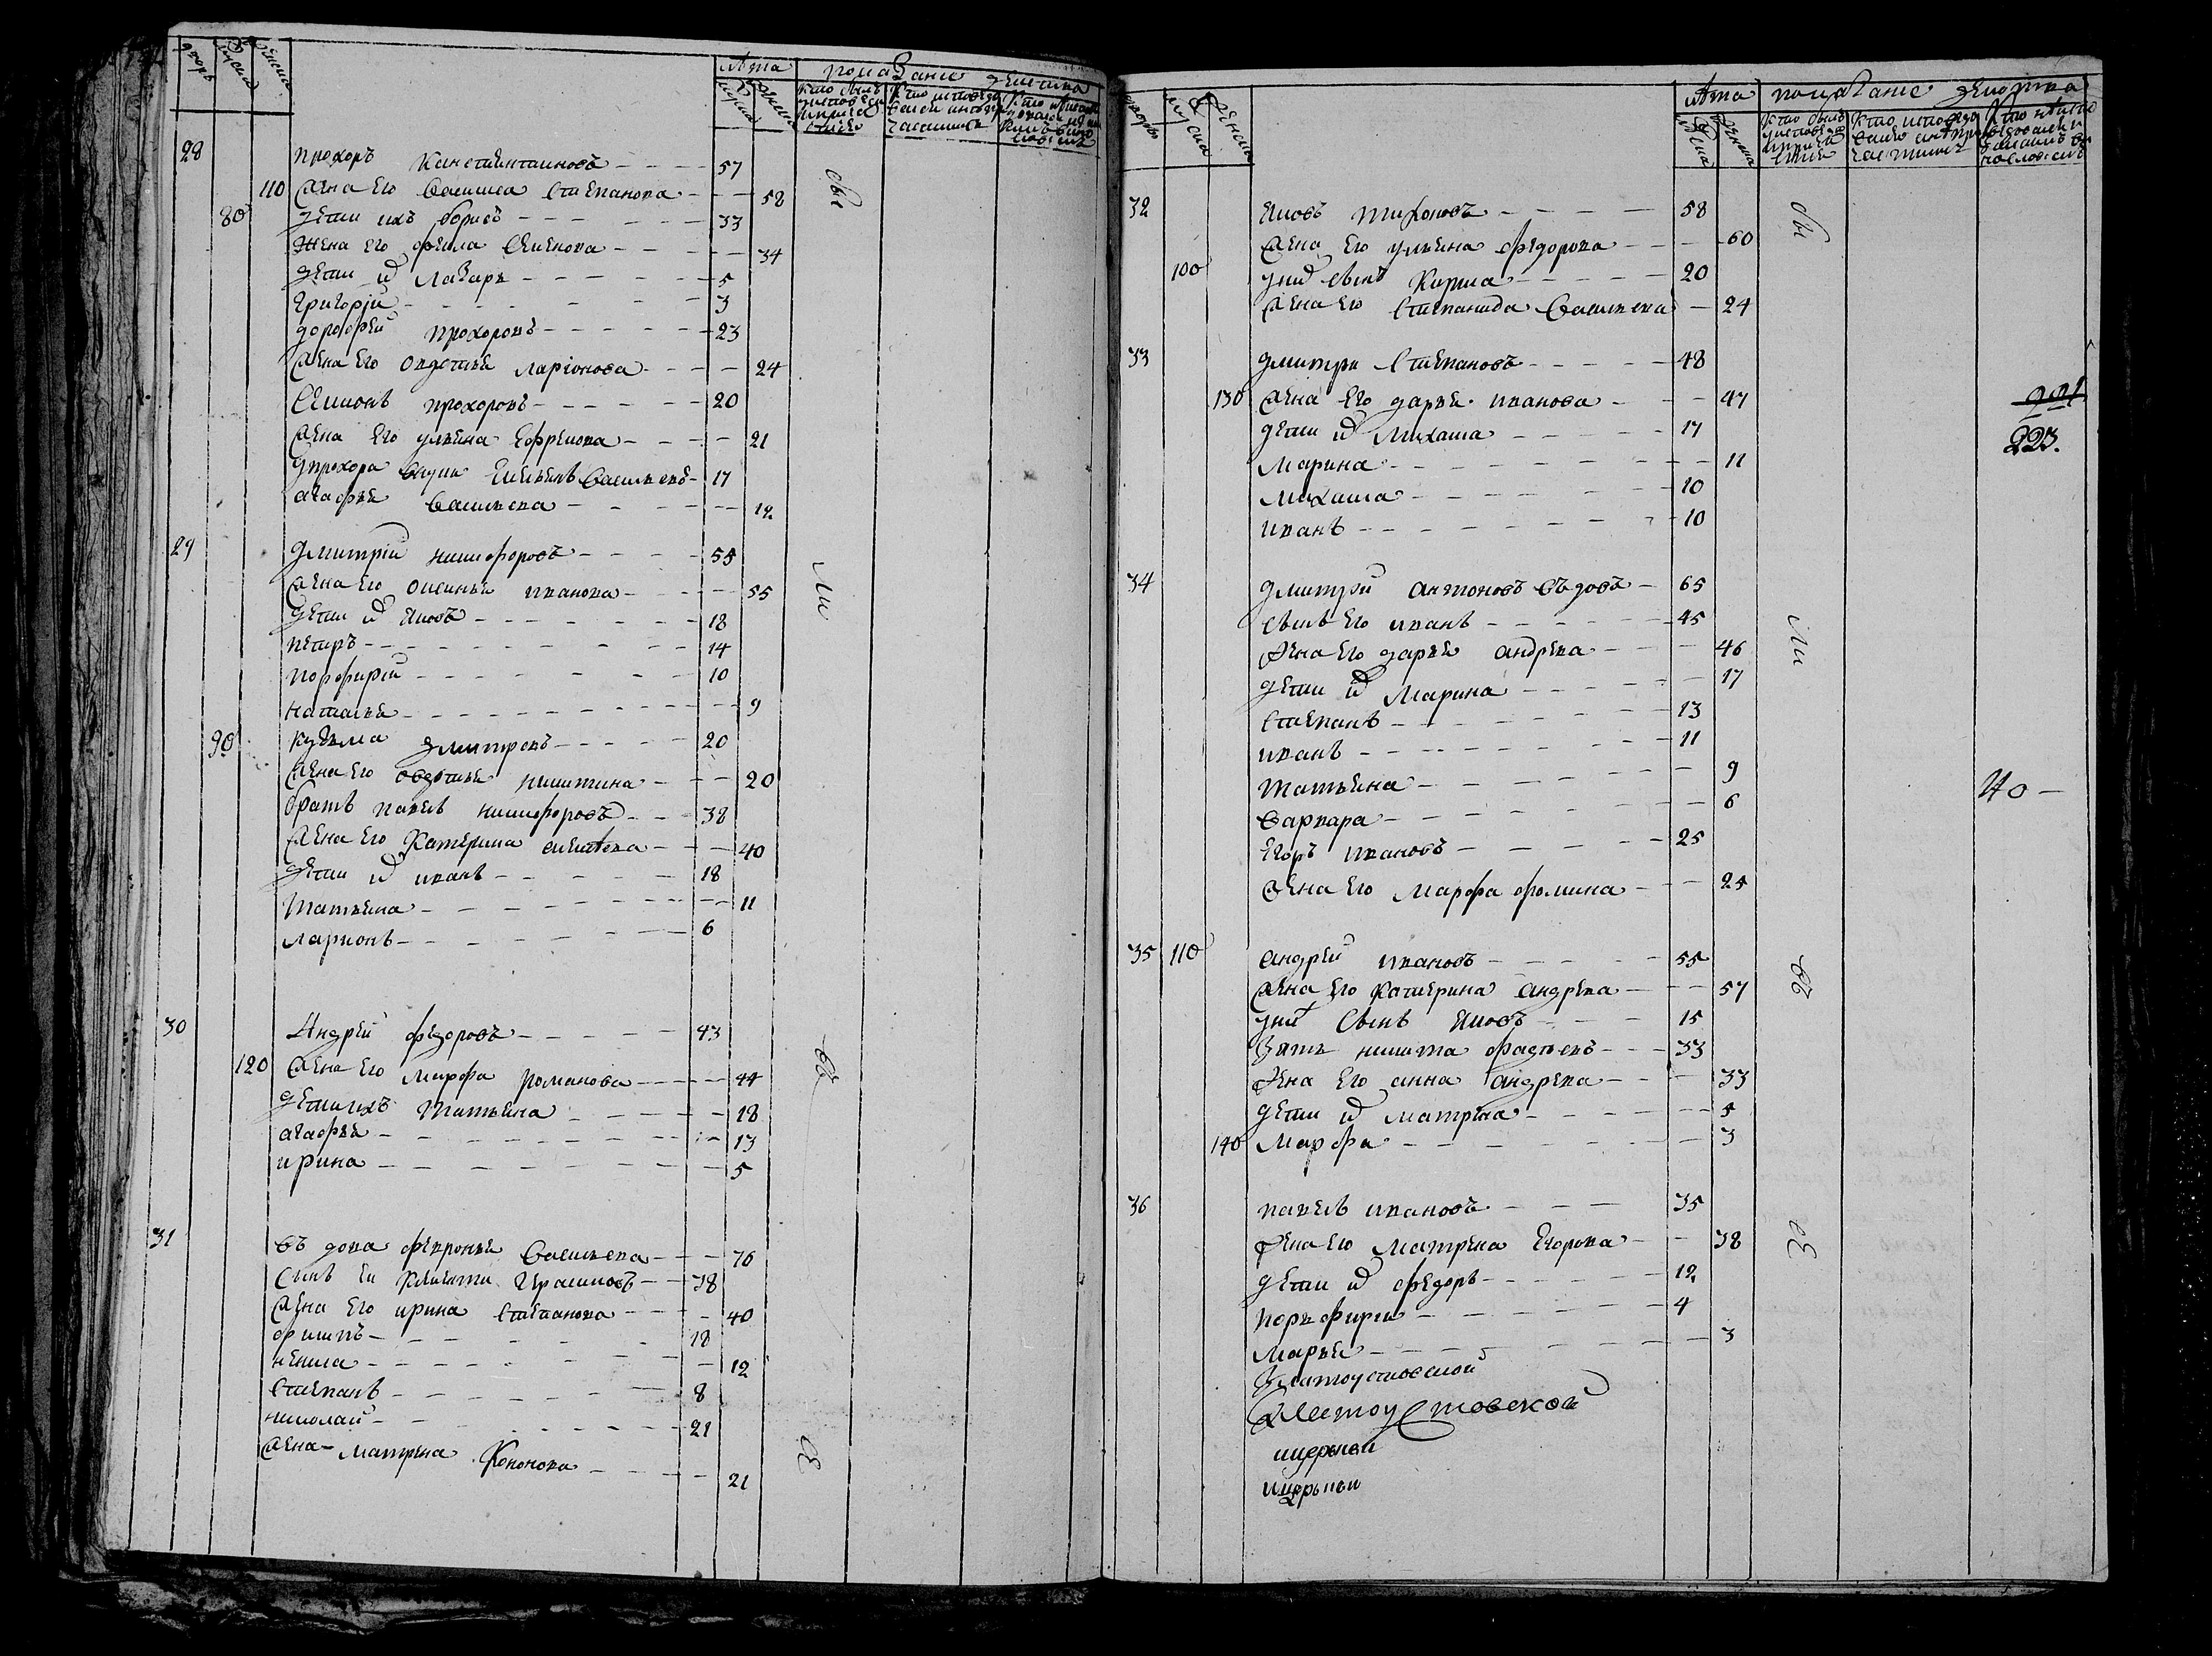 дворъ мужска женска лѣта показание действа
мужска женска Кто былъ у исповеди и причастия Кто исповедовался а не причастился Кто у исповеди не былъ
28 Прохоръ Канстентиновъ 57
110 Жена Его Василиса Степанова 58
80 дети ихъ борисъ 33
Жена его Фекла Семенова 34
дети их Лазарь 5
Григорій 3
дорофей Прохоровъ 23
Жена Его Овдотья Ларіонова 24
Семионъ Прохоровъ 20
Жена Его ульяна Ефремова 21
у прохора внуки Емельянъ Васильевъ 17
агафья Васильева 12
29 дмитрій никифоровъ 55
Жена Его Оксинья иванова 55
дети их Яковъ 18
петръ 14
порфирій 10
наталья 9
90 кузьма дмитревъ 20
Жена Его овдотья никитина 20
братъ павелъ никифоровъ 38
Жена Его Катерина 40
дети их иванъ 18
Татьяна 11
ларионъ 6
30 Андрей федоровъ 43
120 Жена Его Марфа романова 44
дети ихъ Татьяна 18
агафья 13
ирина 5
31 въдова февронья Васильева 76
Сынъ Ея Климентъ Герасимовъ 38
Жена Его ирина Степанова 40
филипъ 18
ненила 12
Степанъ 8
николай 21
Жена Матрена Кононова 21
бы
ли
въ
дворъ мужска женска лѣта показание действа
32 Яковъ Тихоновъ 58
Жена Его ульяна федорова 60
100 у них сынъ Кирила 20
Жена Его Степанида Васильева 24
33 дмитри Степановъ 48
130 Жена Его дарья иванова 47
дети их Михаила 17
Марина 11
Михаила 10
иванъ 10
221
223.
34 дмитрей антоновъ въдовъ 65
сынъ Его иванъ 45
Жена Его дарья андрева 46
дети их Марина 17
Степанъ 13
иванъ 11
Татьяна 9
варвара 6
Егоръ ивановъ 25
Жена Его Марфа фомина 25
40
35 110 андрей ивановъ 55
Жена Его Катерина андрева 57
у них сынъ Яковъ 15
Зять никита фадѣевъ 33
Жена Его анна андрева 33
дети их матрена 5
140 Марфа 3
36 павелъ ивановъ 35
Жена Его Матрена Егорова 38
дети их федоръ 12
порьфирій 4
Марья 3
Златоустовской
Златоустовской
ицерькви
ицерькви
бы
ли
въ